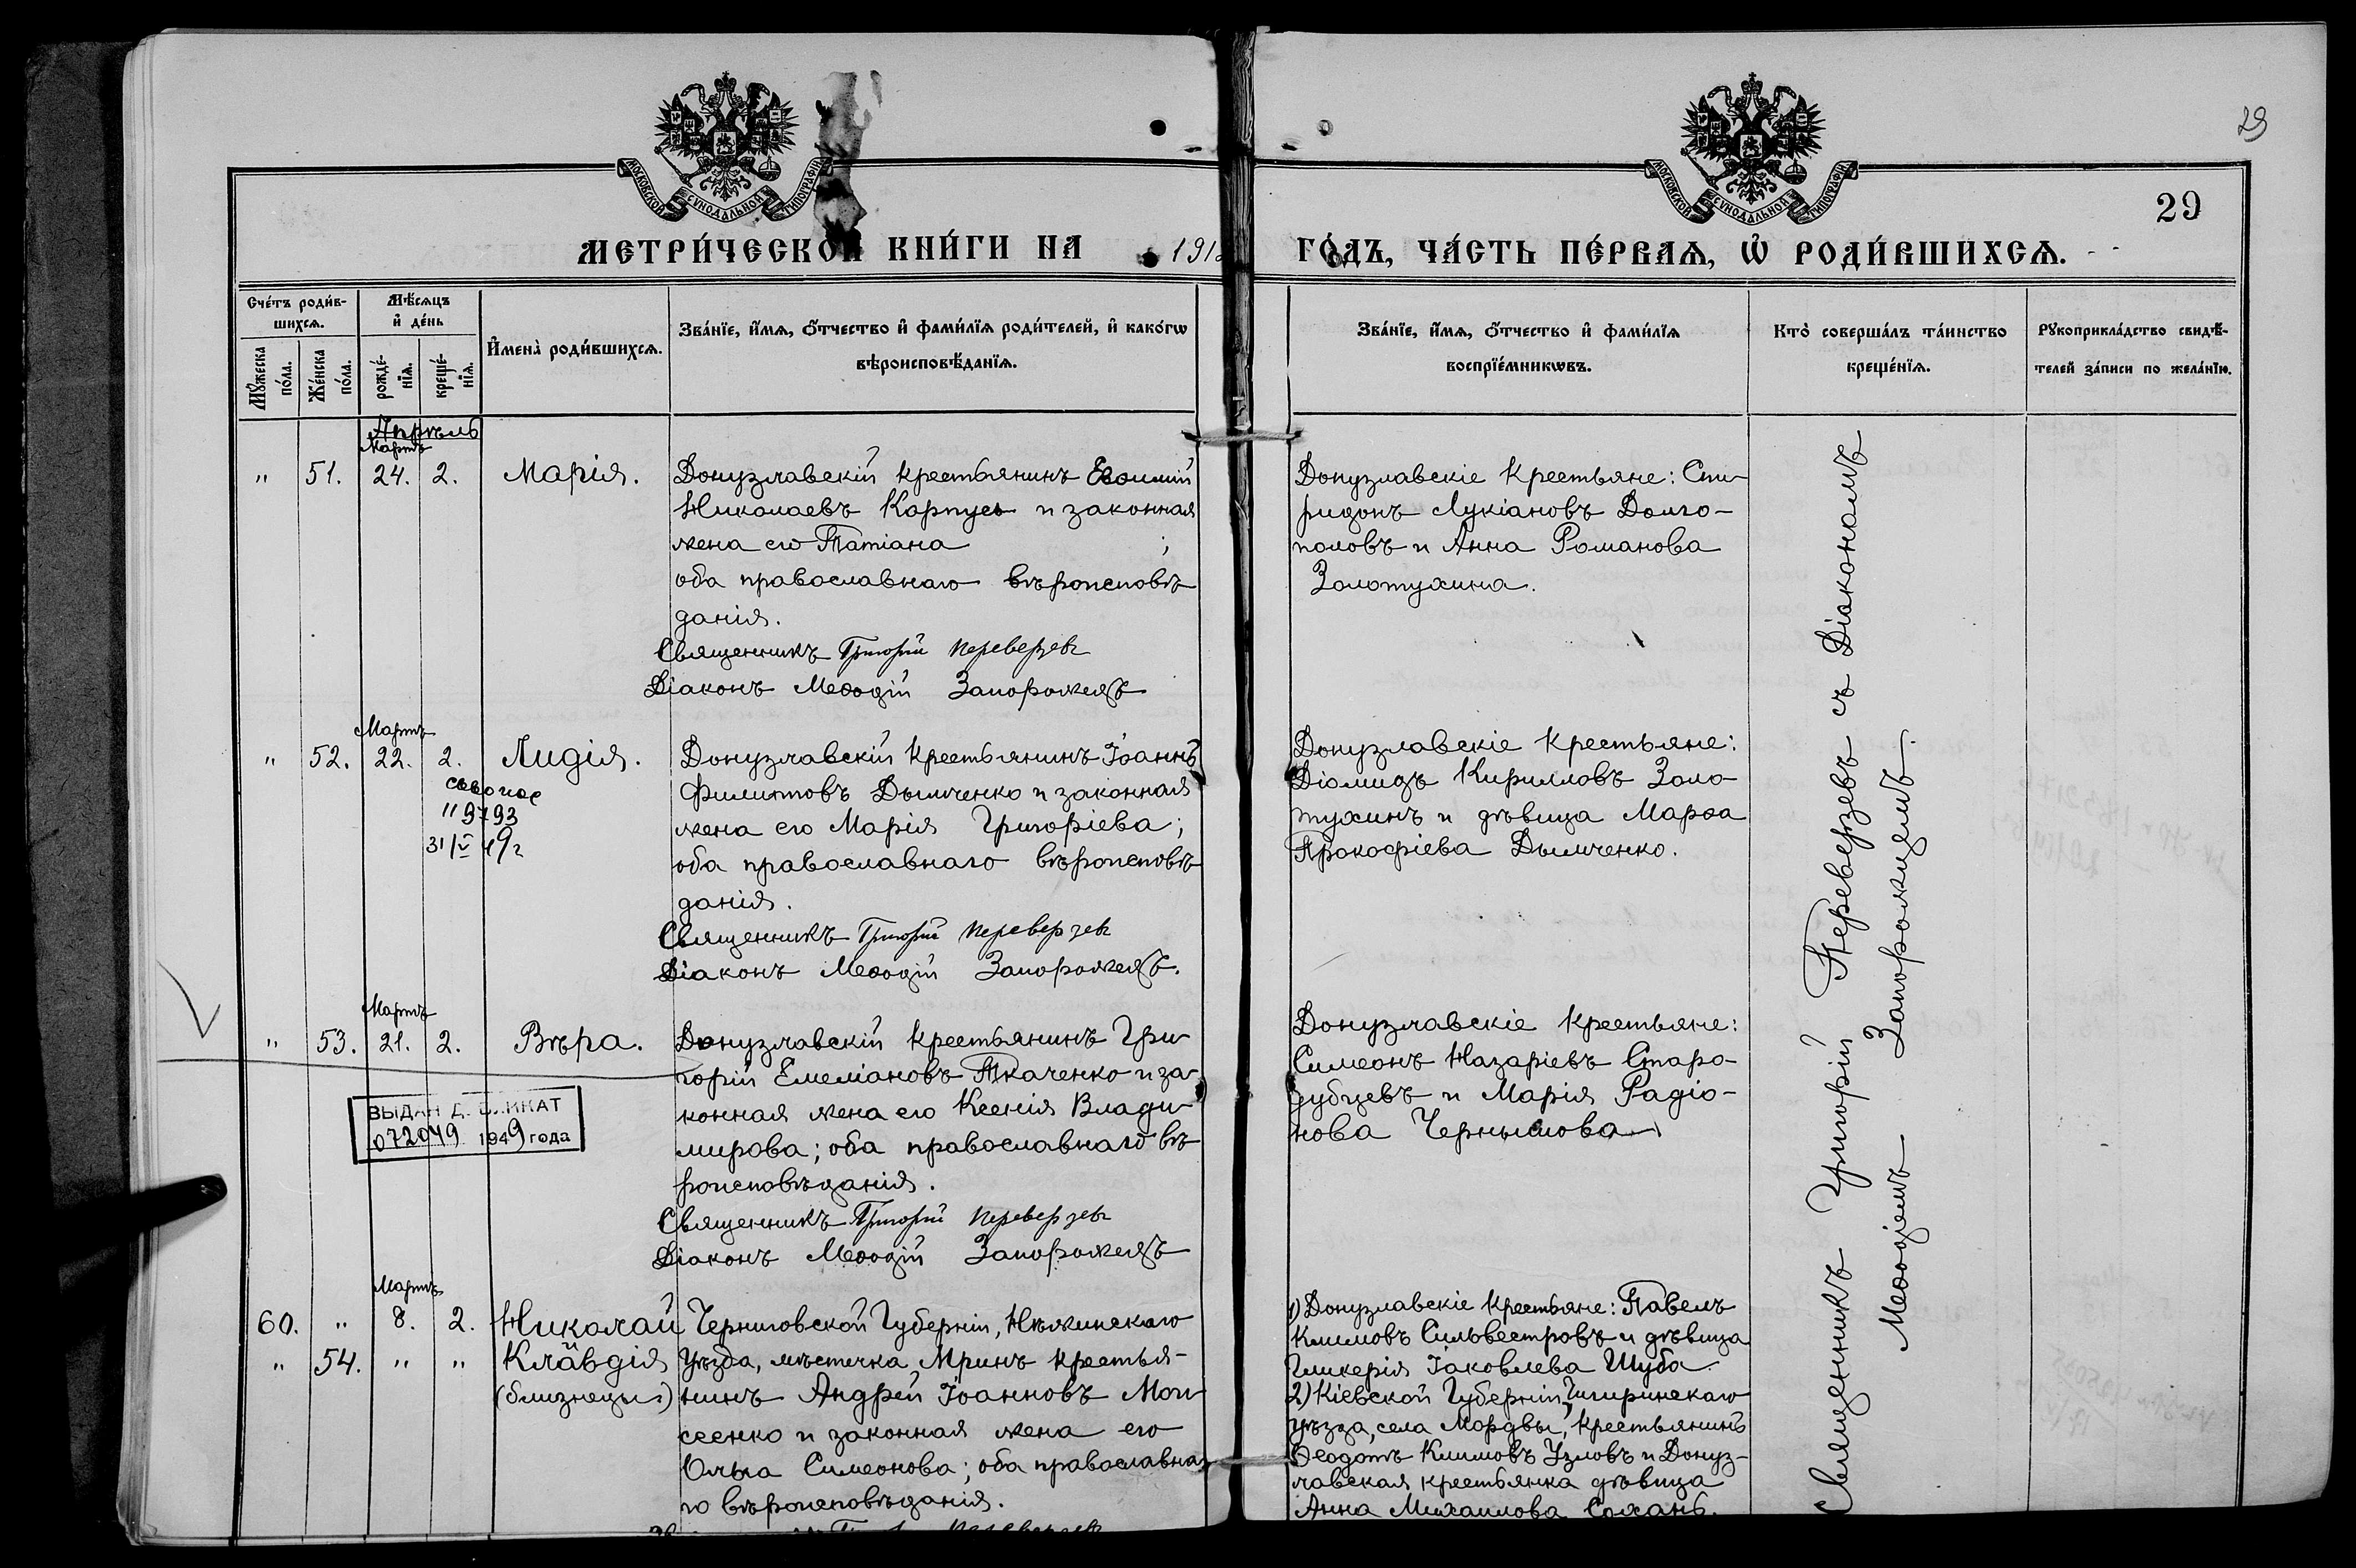 29
МОСКОВСКОЙ СѴНОДАЛЬНОЙ ТИПОГРАФІИ
МОСКОВСКОЙ СѴНОДАЛЬНОЙ ТИПОГРАФІИ
29
МЕТРИ́ЧЕСКОЙ КНИ́ГИ НА 191
ГО́ДЪ, ЧА́СТЬ ПЕ́РВАѦ, Ѽ РОДИ́ВШИХСѦ.
Сче́тъ роди́в-
шихсѧ.
Мѣ́сѧцъ
и҆ де́нь
Мꙋ́жеска
по́ла.
Же́нска
по́ла.
рожде́-
нїѧ.
креще́-
нїѧ.
И҆мена̀ роди́вшихсѧ.
Зва́нїе, и҆́мѧ, ѻ҆́тчество и҆ фами́лїѧ роди́телей, и҆ како́гѡ
вѣроисповѣ́данїѧ.
Зва́нїе, и҆́мѧ, ѻ҆́тчество и҆ фами́лїѧ
воспрїе́мникѡвъ.
Кто̀ соверша́лъ та́инство
креще́нїѧ.
Рꙋкоприкла́дство свидѣ́-
телей за́писи по жела́нїю.
Апрѣль
Мартъ
" 51. 24. 2. Марія.
Донузлавскій крестьянинъ Евѳимій
Николаевъ Карпусь и законная
жена его Татіана ;
оба православнаго вѣроисповѣ
данія.
Священникъ Григорій Переверзевъ
Діаконъ Меѳодій Запорожецъ
Донузлавскіе крестьяне: Спи-
ридонъ Лукіановъ Долго-
половъ и Анна Романова
Золотухина.
Мартъ
" 52. 22. 2. Лидія.
119793
31/V 49г
Донузлавскій крестьянинъ Іоаннъ
Филиповъ Дымченко и законная
жена его Марія Григоріева;
оба православнаго вѣроисповѣ
данія.
Священникъ Григорій Переверзевъ
Діаконъ Меѳодій Запорожецъ.
Донузлавскіе крестьяне:
Діомидъ Кирилловъ Золо-
тухинъ и дѣвица Марѳа
Прокофіева Дымченко.
Мартъ
" 53. 21. 2. Вѣра.
ВЫДАН ДУБЛИКАТ
072049 1949 года
Донузлавскій крестьянинъ Гри-
горій Емеліановъ Ткаченко и за-
конная жена его Ксенія Влади-
мирова; оба православнаго вѣ
роисповѣданія.
Священникъ Григорій Переверзевъ
Діаконъ Меѳодій Запорожецъ
Донузлавскіе крестьяне:
Симеонъ Назаріевъ Старо-
дубцевъ и Марія Радіо-
нова Чернышова
Мартъ
60. " 8. 2. Николай
" 54. " " Клавдія
(близнецы)
Черниговской Губерніи, Нѣжинскаго
уѣзда, мѣстечка Мринъ крестья-
нинъ Андрей Іоанновъ Мои-
сеенко и законная жена его
Ольга Симеонова; оба православна-
го вѣроисповѣданія.
1) Донузлавскіе крестьяне: Павелъ
Климовъ Сильвестровъ и дѣвица
Гликерія Іаковлева Шуба
2) Кіевской Губерніи, Чигиринскаго
уѣзда, села Мордвы, крестьянинъ
Ѳеодотъ Климовъ Узловъ и Донуз-
лавская крестьянка дѣвица
Анна Михаилова Сохань.
Священникъ Григорій Переверзевъ съ Діакономъ
Меѳодіемъ Запорожцемъ.